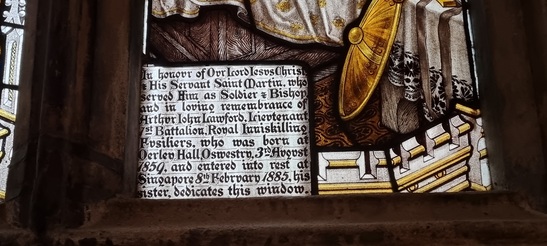 In honour of Ovr Lord Iesvs Christ
& His Servant Saint Martin, who
served Him as Soldier & Bishop
and in loving remembrance of
Arthvr John Lawford, Lievtenant
1st Battalion, Royal Inniskilling
Fvsiliers, who was born at
Oerley Hall Oswestry, 3rd Avgvst
1859, and entered into rest at
Singapore 8th Febrvary 1885, his
sister, dedicates this window.